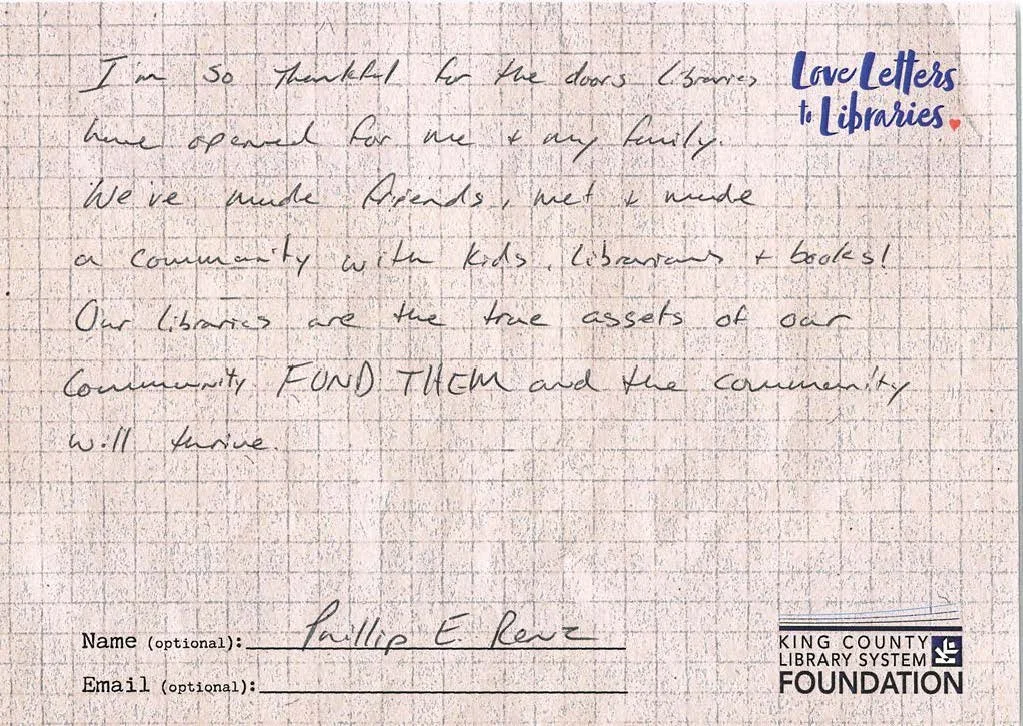 I'm so thankful for the doors libraries
have opened for me + my family.
We've made friends, met + made
a community with kids, librarians + books!
Our libraries are the true assets of our
community. FUND THEM and the community
will thrive.
Love Letters
to Libraries.
Name (optional): Phillip E. Renz
Email (optional):
KING COUNTY
LIBRARY SYSTEM
FOUNDATION